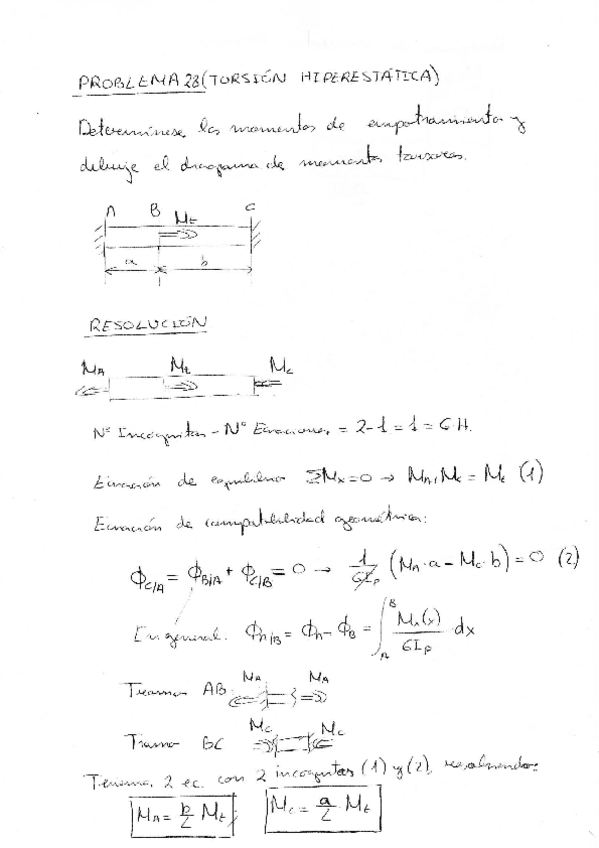 PROBLEMA 28 (TORSIÓN HIPERESTÁTICA)
Determínese los momentos de empotramiento y
dibuje el diagrama de momentos torsores.
A B C
Mt
a b
RESOLUCIÓN
MA Mt Mc
Nº Incognitas - Nº Ecuaciones = 2-1 = 1 = G.H.
Ecuación de equilibrio ΣMx=0 → MA+Mc = Mt (1)
Ecuación de compatibilidad geométrica:
ϕC/A = ϕB/A + ϕC/B = 0 → 1/GIp (MA·a - Mc·b) = 0 (2)
En general: ϕA/B = ϕA - ϕB = ∫ A B Mn(x)/GIp dx
MA MA
Tramo AB
Mc Mc
Tramo BC
Tenemos 2 ec. con 2 incognitas (1) y (2), resolviendo:
MA = b/L Mt; Mc = a/L Mt